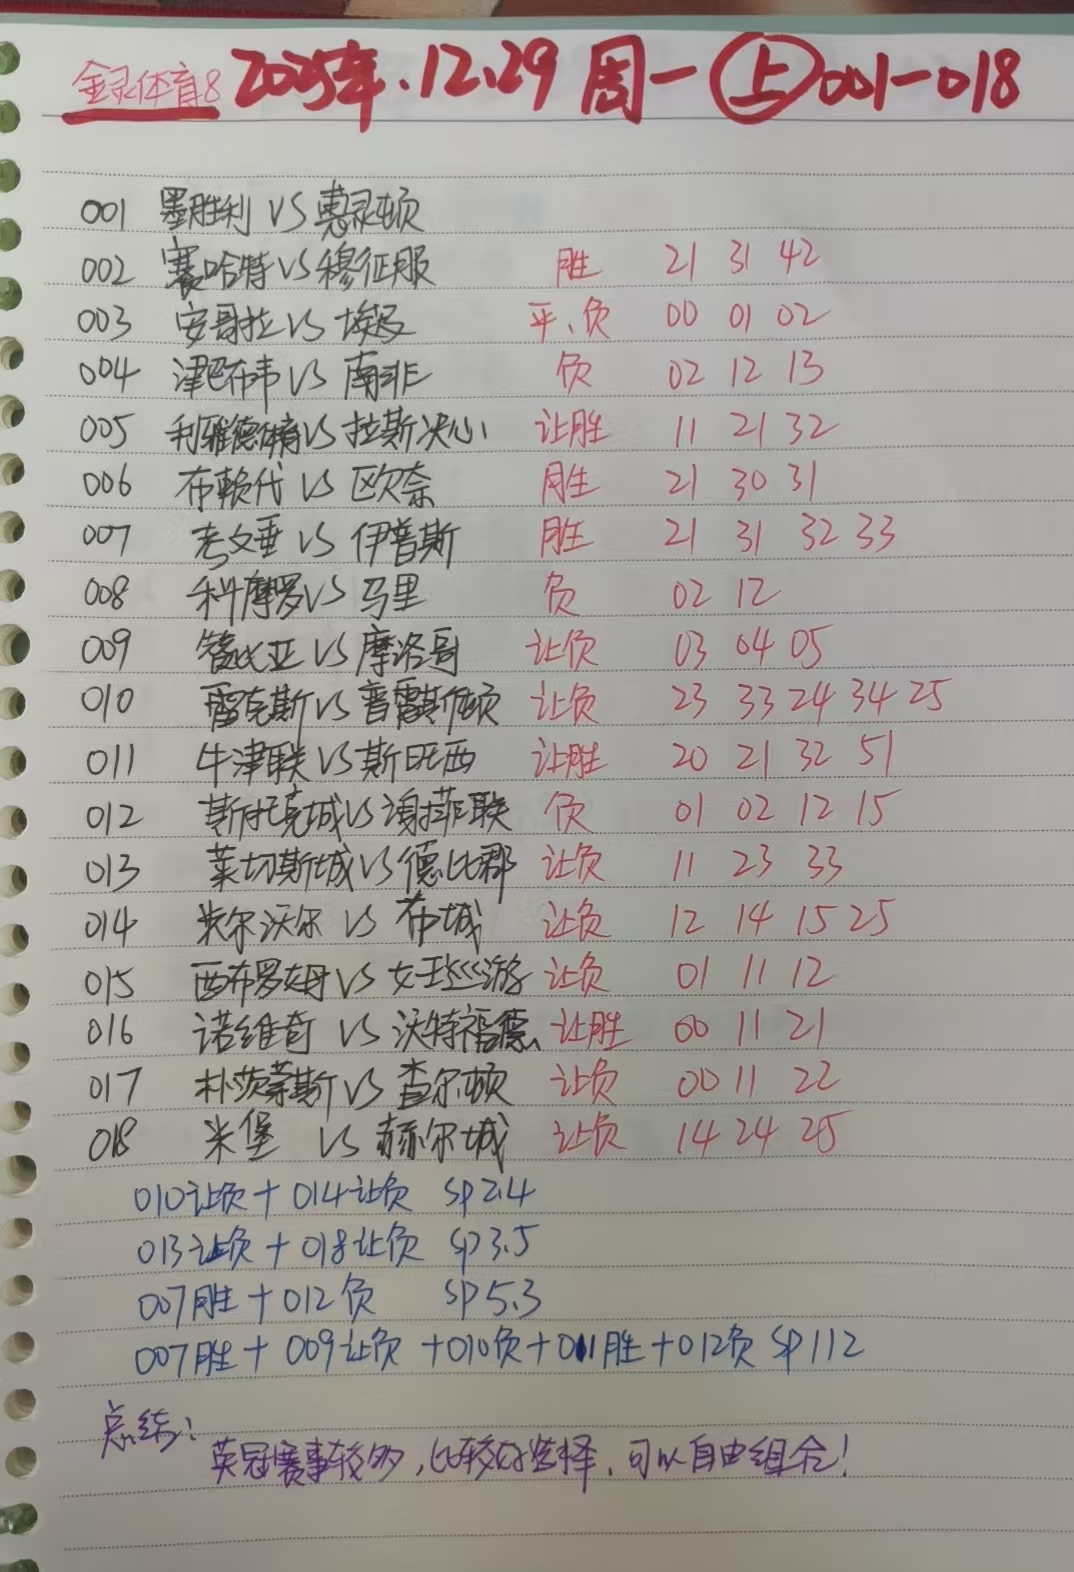 金录体育8 2025年.12.29 周一 上 001-018
001 墨胜利 VS 惠灵顿
002 塞哈特 VS 穆征服 胜 21 31 42
003 安哥拉 VS 埃及 平、负 00 01 02
004 津巴布韦 VS 南非 负 02 12 13
005 利雅德体育 VS 拉斯决心 让胜 11 21 32
006 布赖代 VS 欧奈 胜 21 30 31
007 考文垂 VS 伊普斯 胜 21 31 32 33
008 科摩罗 VS 马里 负 02 12
009 赞比亚 VS 摩洛哥 让负 03 04 05
010 雷克斯 VS 普雷斯顿 让负 23 33 24 34 25
011 牛津联 VS 斯旺西 让胜 20 21 32 51
012 斯托克城 VS 谢菲联 负 01 02 12 15
013 莱切斯城 VS 德比郡 让负 11 23 33
014 米尔沃尔 VS 布城 让负 12 14 15 25
015 西布罗姆 VS 女王巡游 让负 01 11 12
016 诺维奇 VS 沃特福德 让胜 00 11 21
017 朴茨茅斯 VS 查尔顿 让负 00 11 22
018 米堡 VS 赫尔城 让负 14 24 25
010让负 + 014让负 SP2.4
013让负 + 018让负 SP3.5
007胜 + 012负 SP5.3
007胜 + 009让负 + 010负 + 011胜 + 012负 SP112
总结:
英冠赛事较多,比较好选择,可以自由组合!